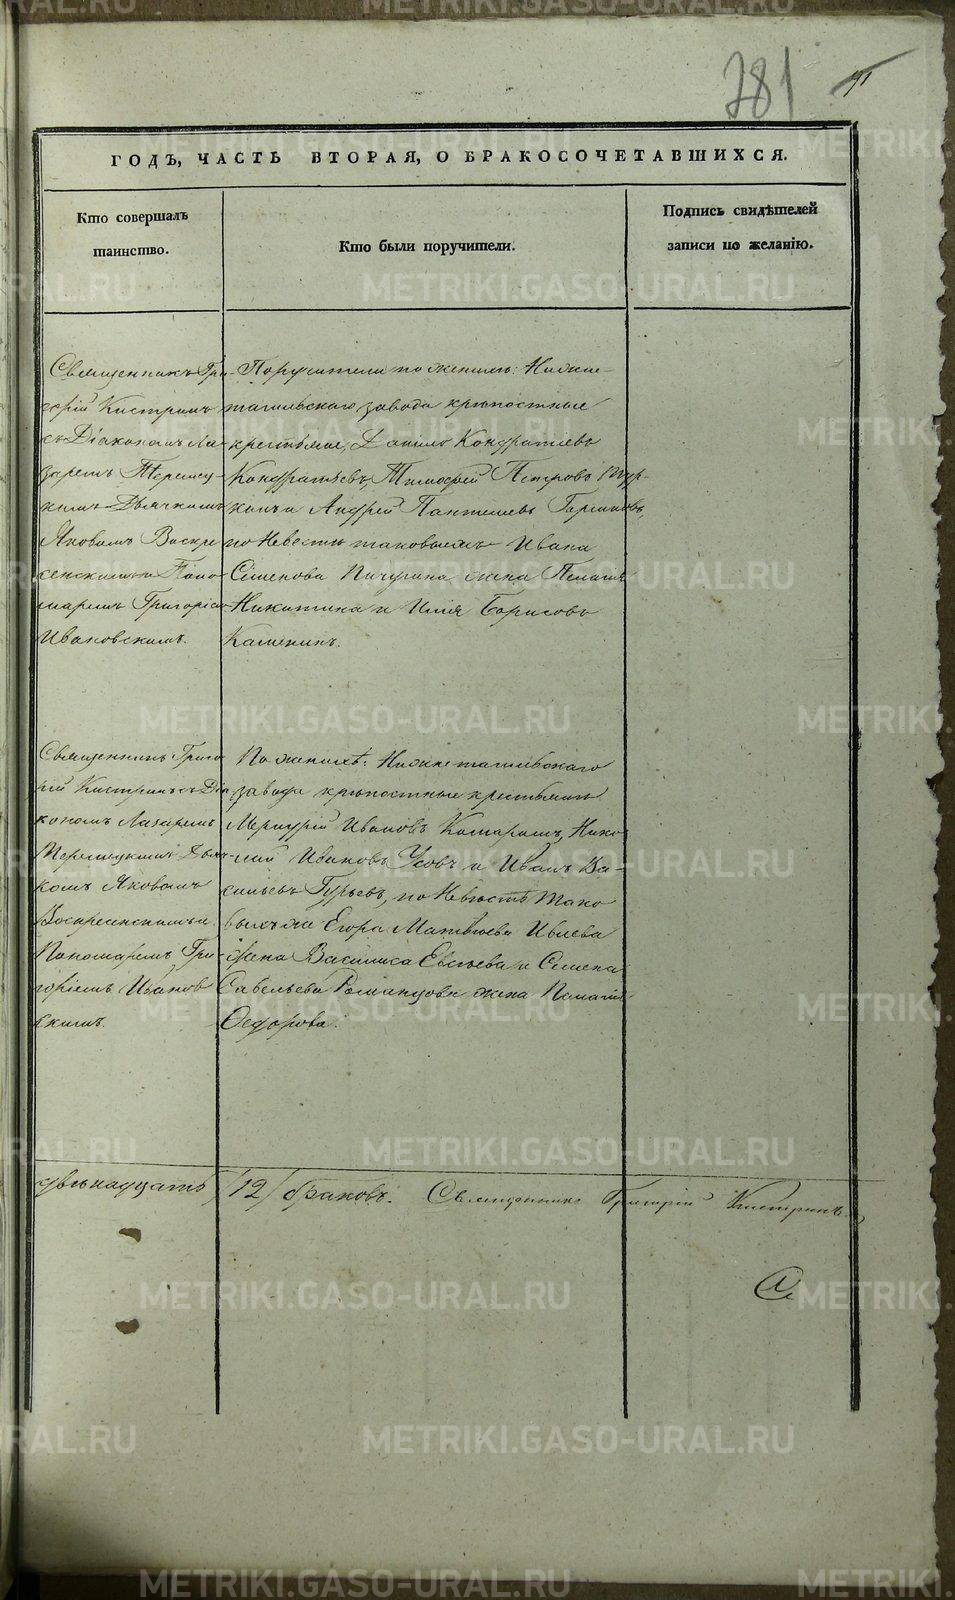 281
ГОДЪ, ЧАСТЬ ВТОРАЯ, О БРАКОСОЧЕТАВШИХСЯ.
Кто совершалъ
таинство.
Кто были поручители.
Подпись свидѣтелей
записи по желанію.
Священникъ Гри-
горій Кистринъ
съ Діакономъ Ла-
заремъ
Дьячкомъ
Яковомъ Воскре
сенскимъ и Поно-
маремъ Григоріемъ
Ивановскимъ.
Поручители по женихѣ: Нижне-
тагильскаго завода крѣпостные
крестьяне, Данило Кондратьевъ
Кондратьевъ, Тимофей Петровъ
и Андрей Пантелеевъ
по Невестѣ таковыежъ Ивана
Семенова Пичугина жена Пелагія
Никитина и Илія Борисовъ
Каменинъ.
Священникъ Григо
рій Кистринъ съ Діа
кономъ Лазаремъ
Дьяч-
комъ Яковомъ
Воскресенскимъ и
Пономаремъ Гри-
горіемъ Иванов
скимъ.
По женихѣ: Нижнетагильскаго
завода крѣпостные крестьяне
Меркурій Ивановъ Комаровъ, Нико-
лай Ивановъ Усовъ и Иванъ Ва-
сильевъ Гурьевъ, по Невѣстѣ тако
выхъ же Егора Матвѣева Ивлева
жена Василиса Евсѣева и Семена
Савельева Романцова жена Пелагія
Федорова.
двѣнадцать /12/ браковъ. Священникъ Григорій Кистринъ
METRIKI.GASO-URAL.RU